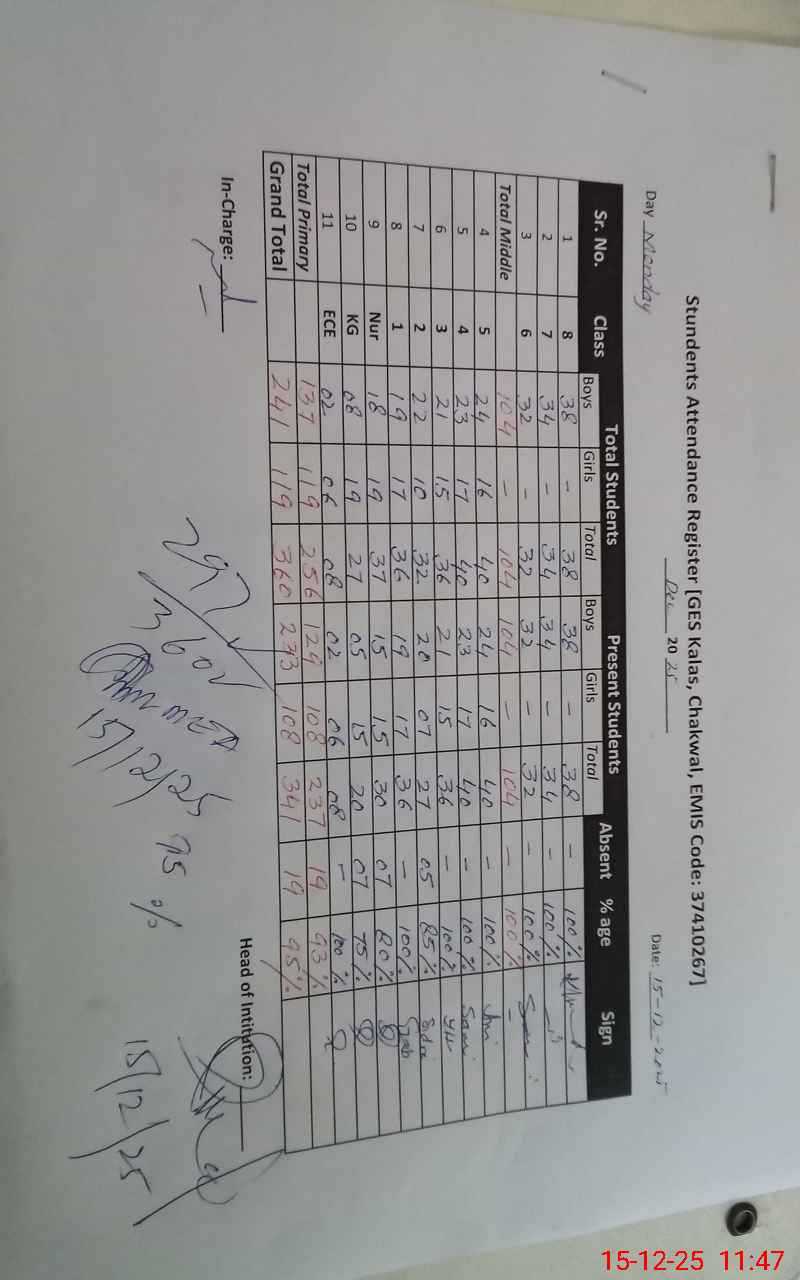 Stundents Attendance Register [GES Kalas, Chakwal, EMIS Code: 37410267]
Day Monday Dec 2025 Date: 15-12-2025
Sr. No. Class Total Students Present Students Absent % age Sign
Boys Girls Total Boys Girls Total
1 8 38 - 38 38 - 38 - 100%
2 7 34 - 34 34 - 34 - 100%
3 6 32 - 32 32 - 32 - 100%
Total Middle 104 - 104 104 - 104 - 100% -
4 5 24 16 40 24 16 40 - 100%
5 4 23 17 40 23 17 40 - 100%
6 3 21 15 36 21 15 36 - 100%
7 2 22 10 32 20 07 27 05 85%
8 1 19 17 36 19 17 36 - 100%
9 Nur 18 19 37 15 15 30 07 80%
10 KG 08 19 27 05 15 20 07 75%
11 ECE 02 06 08 02 06 08 - 100%
Total Primary 137 119 256 129 108 237 19 93%
Grand Total 241 119 360 233 108 341 19 95%
In-Charge: Head of Intitution:
360
15/12/25 95 %
15/12/25
15-12-25 11:47